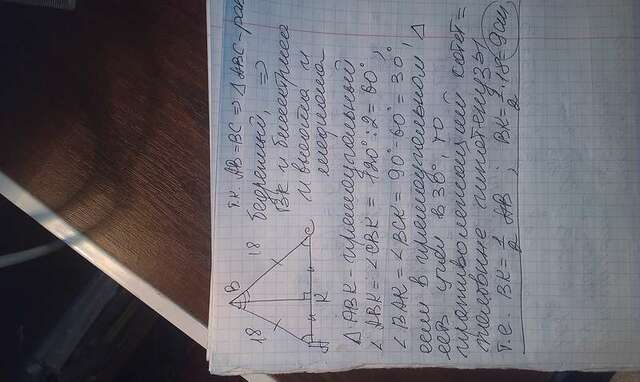 т.к. AB = BC => △ ABC - рав
бедренный, =>
BK и биссектриса
и высота и
медиана
B
18
18
A
K
C
△ ABK - прямоугольный
∠ ABK = ∠ CBK = 120° : 2 = 60°,
∠ BAK = ∠ BCK = 90° - 60° = 30°
если в прямоугольном △
есть угол в 30°, то
противолежащий катет =
половине гипотенузы
т.е. BK = 1/2 AB ; BK = 1/2 · 18 = 9 см